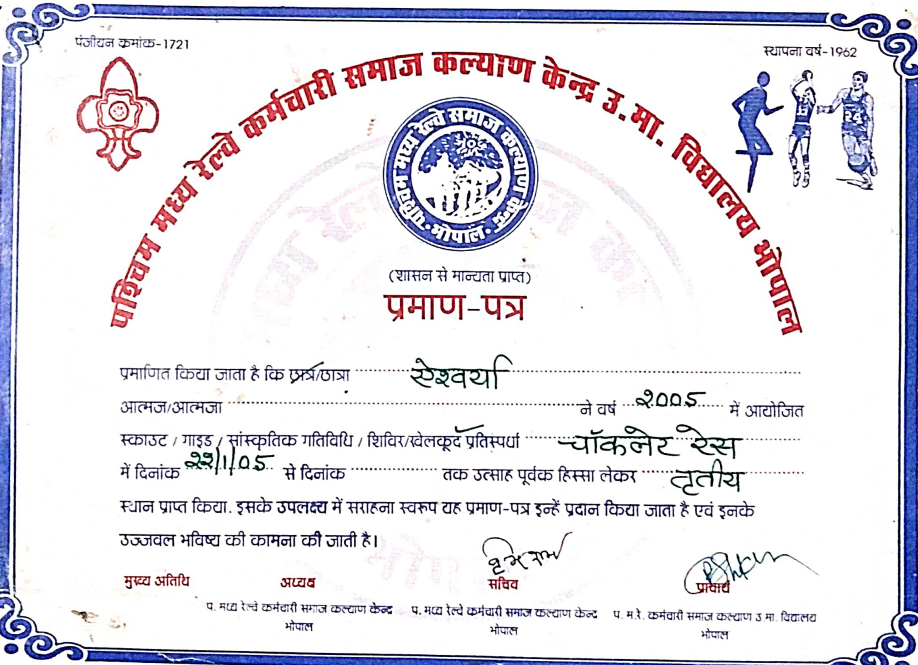 पंजीयन क्रमांक-1721
स्थापना वर्ष-1962
पश्चिम मध्य रेल्वे कर्मचारी समाज कल्याण केन्द्र उ.मा. विद्यालय भोपाल
पश्चिम मध्य रेल्वे समाज कल्याण केन्द्र
भोपाल
(शासन से मान्यता प्राप्त)
प्रमाण-पत्र
प्रमाणित किया जाता है कि छात्र/छात्रा ऐश्वर्या
आत्मज/आत्मजा ने वर्ष २००५ में आयोजित
स्काउट / गाइड / सांस्कृतिक गतिविधि / शिविर/खेलकूद प्रतिस्पर्धा चॉकलेट रेस
में दिनांक २२/1/05 से दिनांक तक उत्साह पूर्वक हिस्सा लेकर तृतीय
स्थान प्राप्त किया. इसके उपलक्ष्य में सराहना स्वरूप यह प्रमाण-पत्र इन्हें प्रदान किया जाता है एवं इनके
उज्जवल भविष्य की कामना की जाती है।
मुख्य अतिथि अध्यक्ष सचिव प्राचार्य
प. मध्य रेल्वे कर्मचारी समाज कल्याण केन्द्र प. मध्य रेल्वे कर्मचारी समाज कल्याण केन्द्र प. म.रे. कर्मचारी समाज कल्याण उ.मा. विद्यालय
भोपाल भोपाल भोपाल